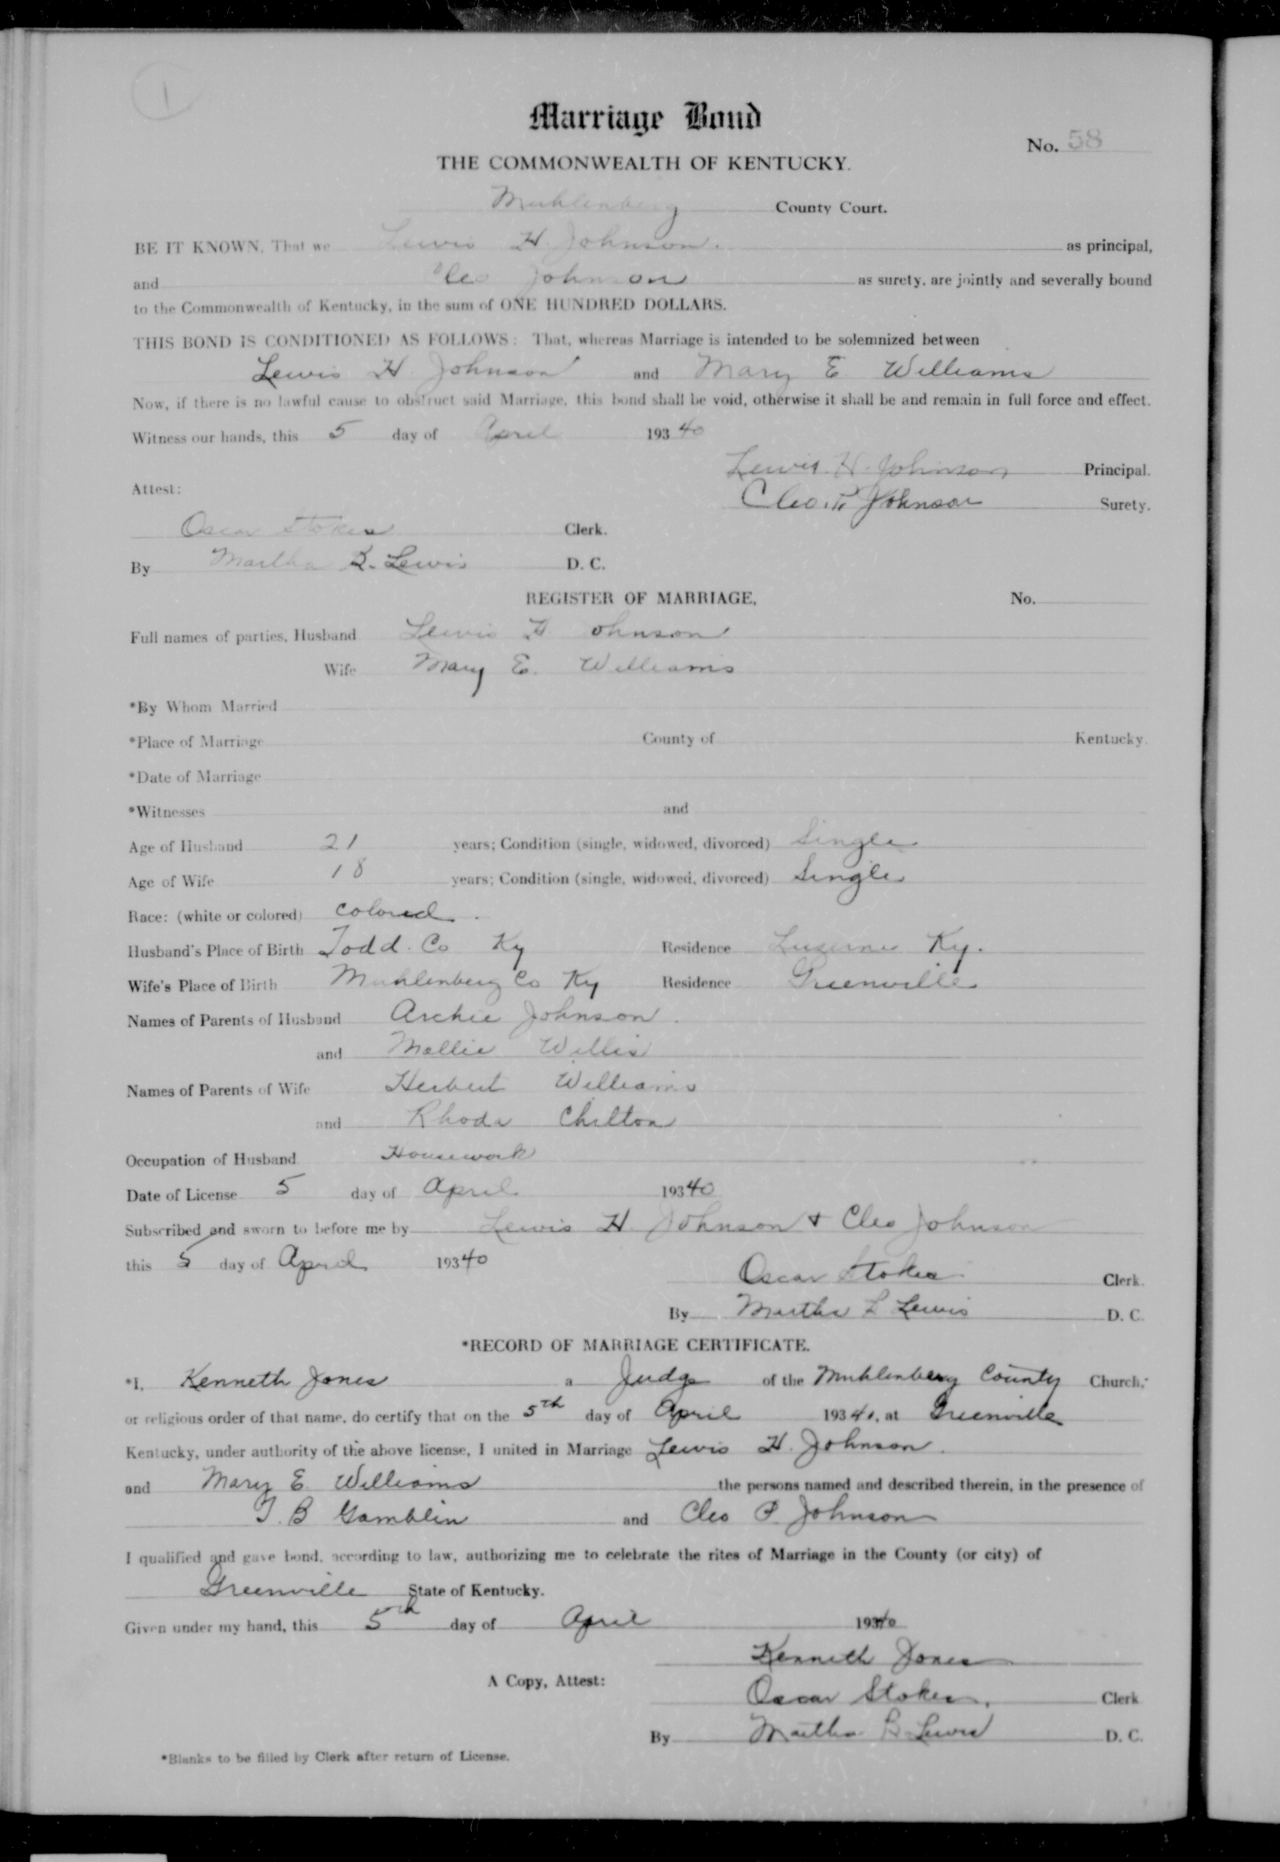 1
Marriage Bond
No. 58
THE COMMONWEALTH OF KENTUCKY.
Muhlenberg County Court.
BE IT KNOWN, That we Lewis H. Johnson. as principal,
and Cleo Johnson as surety, are jointly and severally bound
to the Commonwealth of Kentucky, in the sum of ONE HUNDRED DOLLARS.
THIS BOND IS CONDITIONED AS FOLLOWS: That, whereas Marriage is intended to be solemnized between
Lewis H. Johnson and Mary E Williams
Now, if there is no lawful cause to obstruct said Marriage, this bond shall be void, otherwise it shall be and remain in full force and effect.
Witness our hands, this 5 day of April 19340
Lewis H. Johnson Principal.
Attest:
Cleo. P. Johnson Surety.
Oscar Stokes Clerk.
By Martha B. Lewis D. C.
REGISTER OF MARRIAGE, No.
Full names of parties, Husband Lewis H Johnson
Wife Mary E. Williams
*By Whom Married
*Place of Marriage County of Kentucky.
*Date of Marriage
*Witnesses and
Age of Husband 21 years; Condition (single, widowed, divorced) Single
Age of Wife 18 years; Condition (single, widowed, divorced) Single
Race: (white or colored) colored.
Husband's Place of Birth Todd. Co Ky Residence Luzerne Ky.
Wife's Place of Birth Muhlenberg Co Ky Residence Greenville
Names of Parents of Husband Archie Johnson.
and Mollie Willis
Names of Parents of Wife Herbert Williams
and Rhoda Chilton
Occupation of Husband Housework
Date of License 5 day of April 19340
Subscribed and sworn to before me by Lewis H. Johnson & Cleo Johnson
this 5 day of April 19340
Oscar Stokes Clerk.
By Martha B Lewis D. C.
*RECORD OF MARRIAGE CERTIFICATE.
*I, Kenneth Jones a Judge of the Muhlenberg County Church,
or religious order of that name, do certify that on the 5th day of April 19340, at Greenville
Kentucky, under authority of the above license, I united in Marriage Lewis H. Johnson.
and Mary E. Williams the persons named and described therein, in the presence of
T. B Gamblin and Cleo P. Johnson
I qualified and gave bond, according to law, authorizing me to celebrate the rites of Marriage in the County (or city) of
Greenville State of Kentucky.
Given under my hand, this 5th day of April 19340
Kenneth Jones
A Copy, Attest:
Oscar Stokes. Clerk
By Martha B Lewis D. C.
*Blanks to be filled by Clerk after return of License.